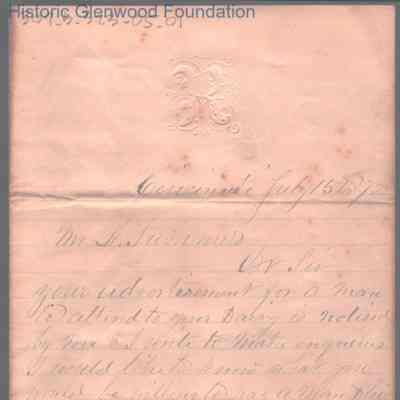 Historic Glenwood Foundation
Cincinnati July 15th 187
Mr
Dr Sir
your advertisement for a man
to attend to your Dairy is noticed
by me & I write to make enquiries
I would like to know what you
would be willing to pay a man